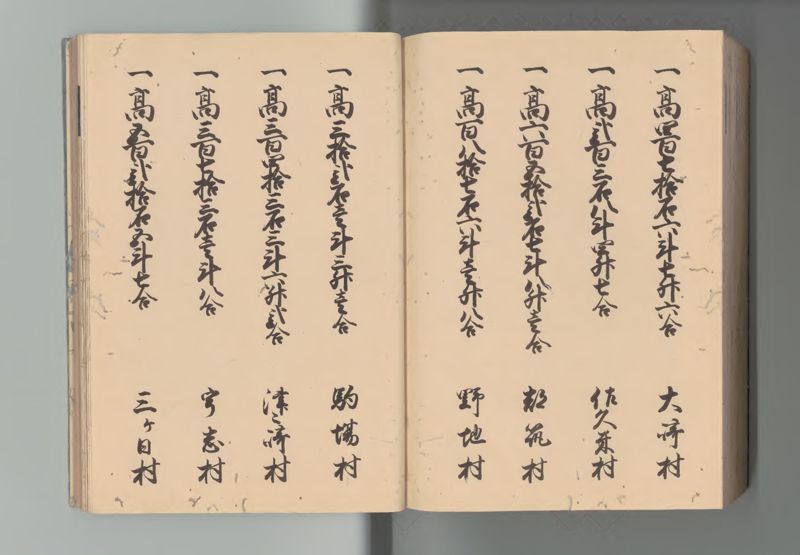 一 高四百七拾石六斗七升六合 大崎村
一 高弐百三石八斗四升七合 佐久米村
一 高六百五拾弐石七斗八升壱合 都筑村
一 高百八拾七石六斗壱升八合 野地村
一 高三拾弐石壱斗三升壱合 駒場村
一 高三百四拾三石三斗六升弐合 津々崎村
一 高三百七拾三石壱斗八合 宇志村
一 高五百弐拾石五斗七合 三ケ日村